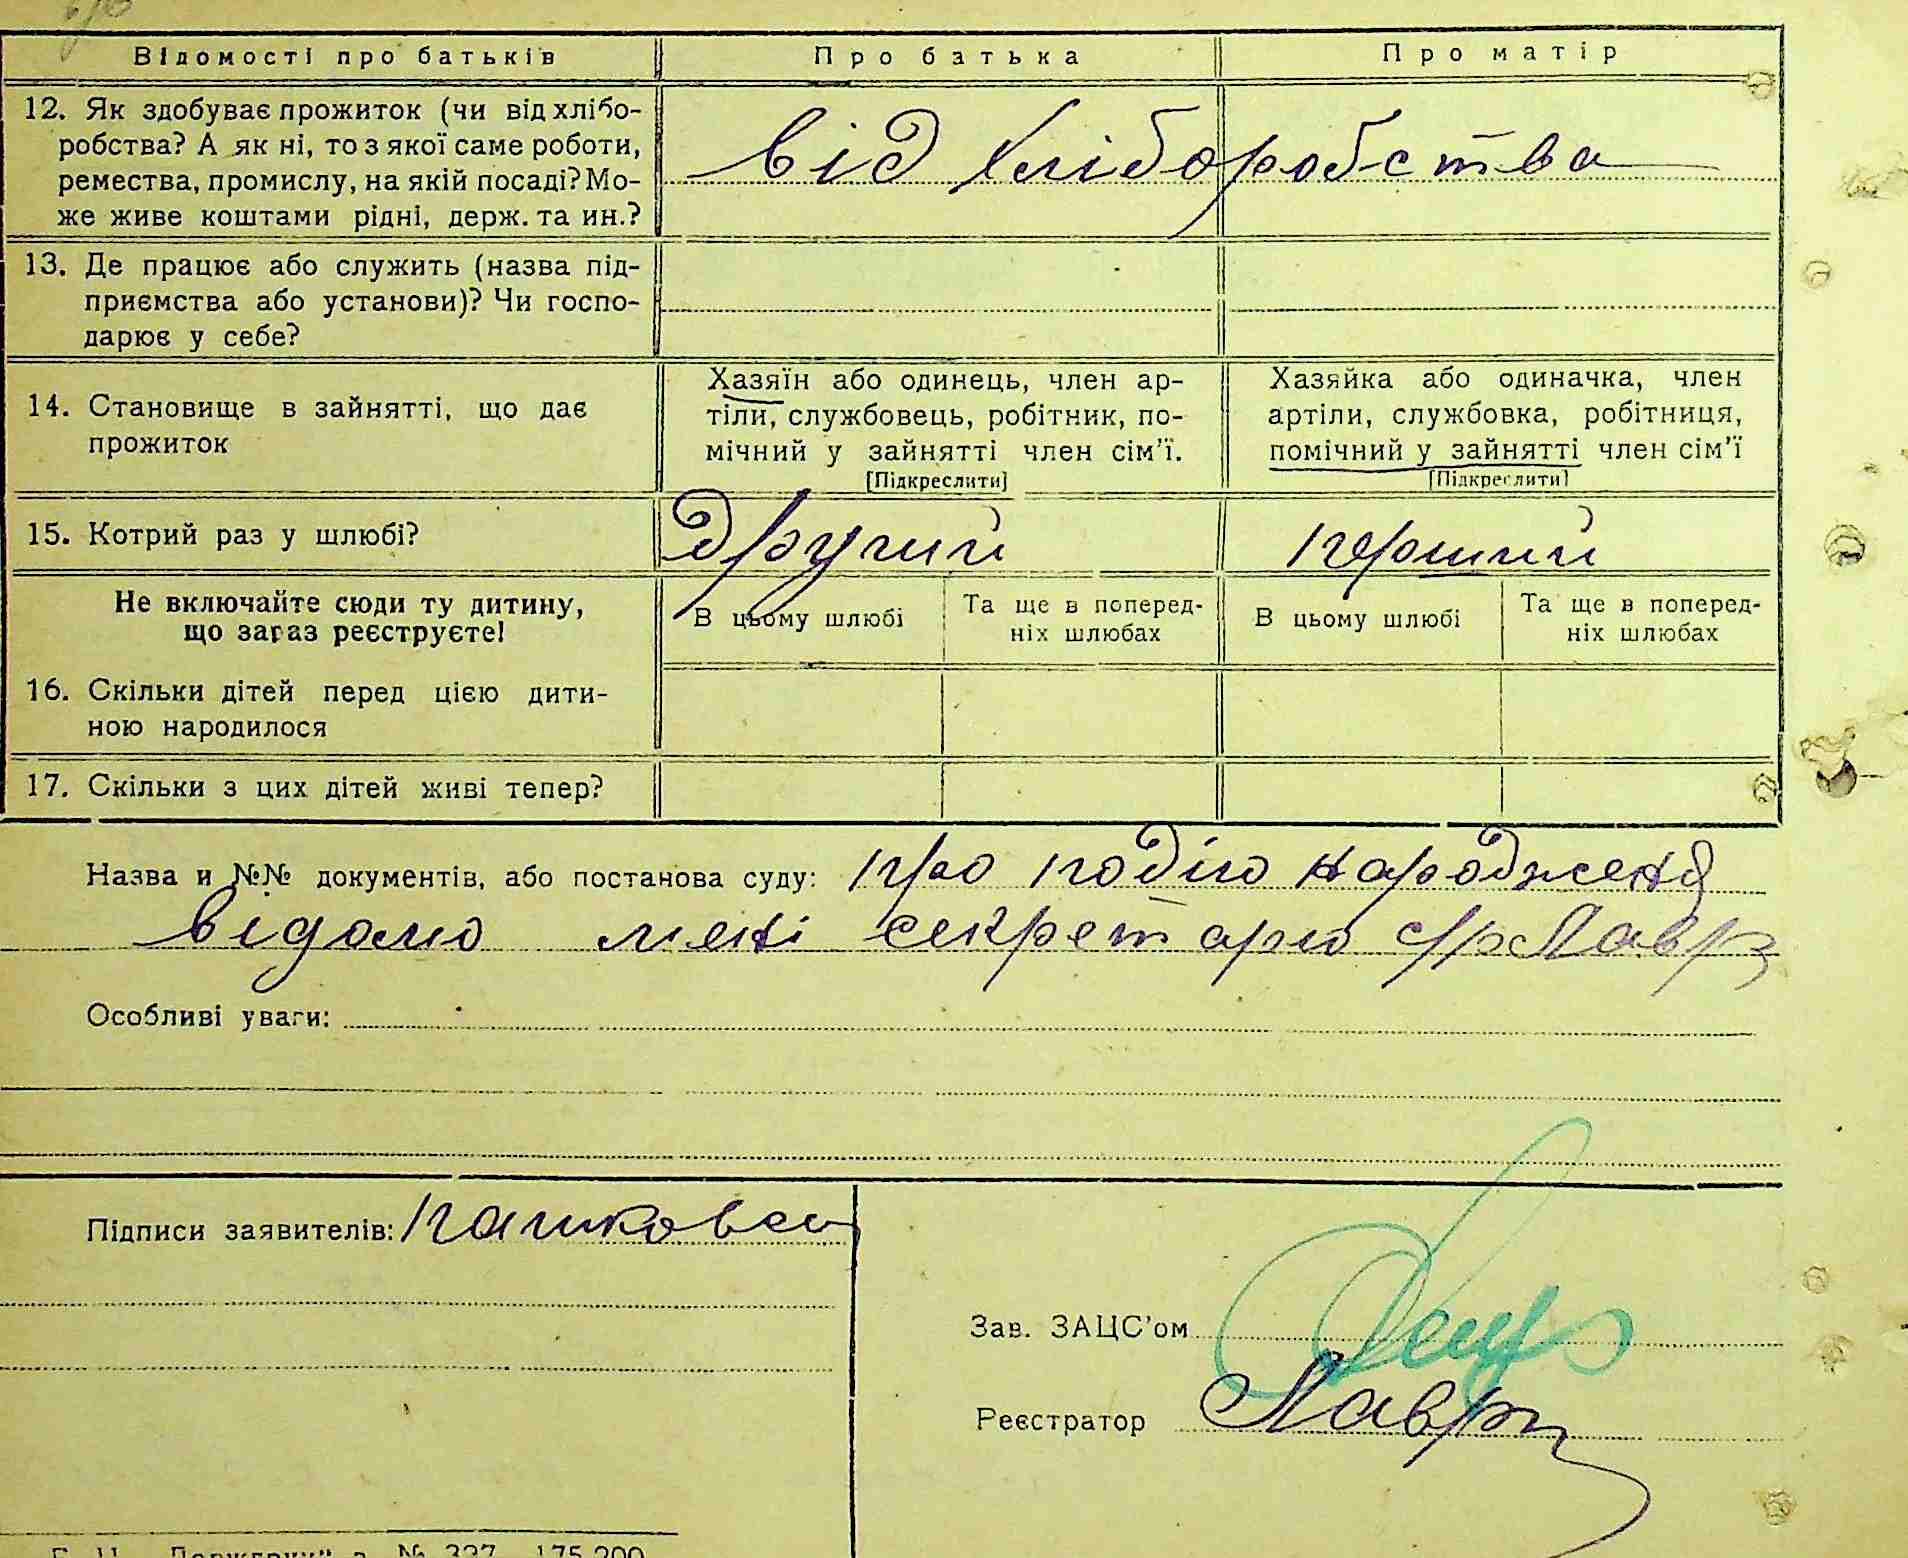 Відомості про батьків
Про батька
Про матір
12. Як здобуває прожиток (чи від хлібо-
робства? А як ні, то з якої саме роботи,
ремества, промислу, на якій посаді? Мо-
же живе коштами рідні, держ. та ин.?
від хліборобства
13. Де працює або служить (назва під-
приємства або установи)? Чи госпо-
дарює у себе?
14. Становище в зайнятті, що дає
прожиток
Хазяїн або одинець, член ар-
тіли, службовець, робітник, по-
мічний у зайнятті член сім'ї.
[Підкреслити]
Хазяйка або одиначка, член
артіли, службовка, робітниця,
помічний у зайнятті член сім'ї
[Підкреслити]
15. Котрий раз у шлюбі?
другий
перший
Не включайте сюди ту дитину,
що зараз реєструєте!
В цьому шлюбі
Та ще в поперед-
ніх шлюбах
В цьому шлюбі
Та ще в поперед-
ніх шлюбах
16. Скільки дітей перед цією дити-
ною народилося
17. Скільки з цих дітей живі тепер?
Назва и №№ документів, або постанова суду: про подію народженя
відомо мені секретарю с/р Лавр
Особливі уваги:
Підписи заявителів:
Зав. ЗАЦС'ом
Реєстратор Лавр
№ 327—175.200